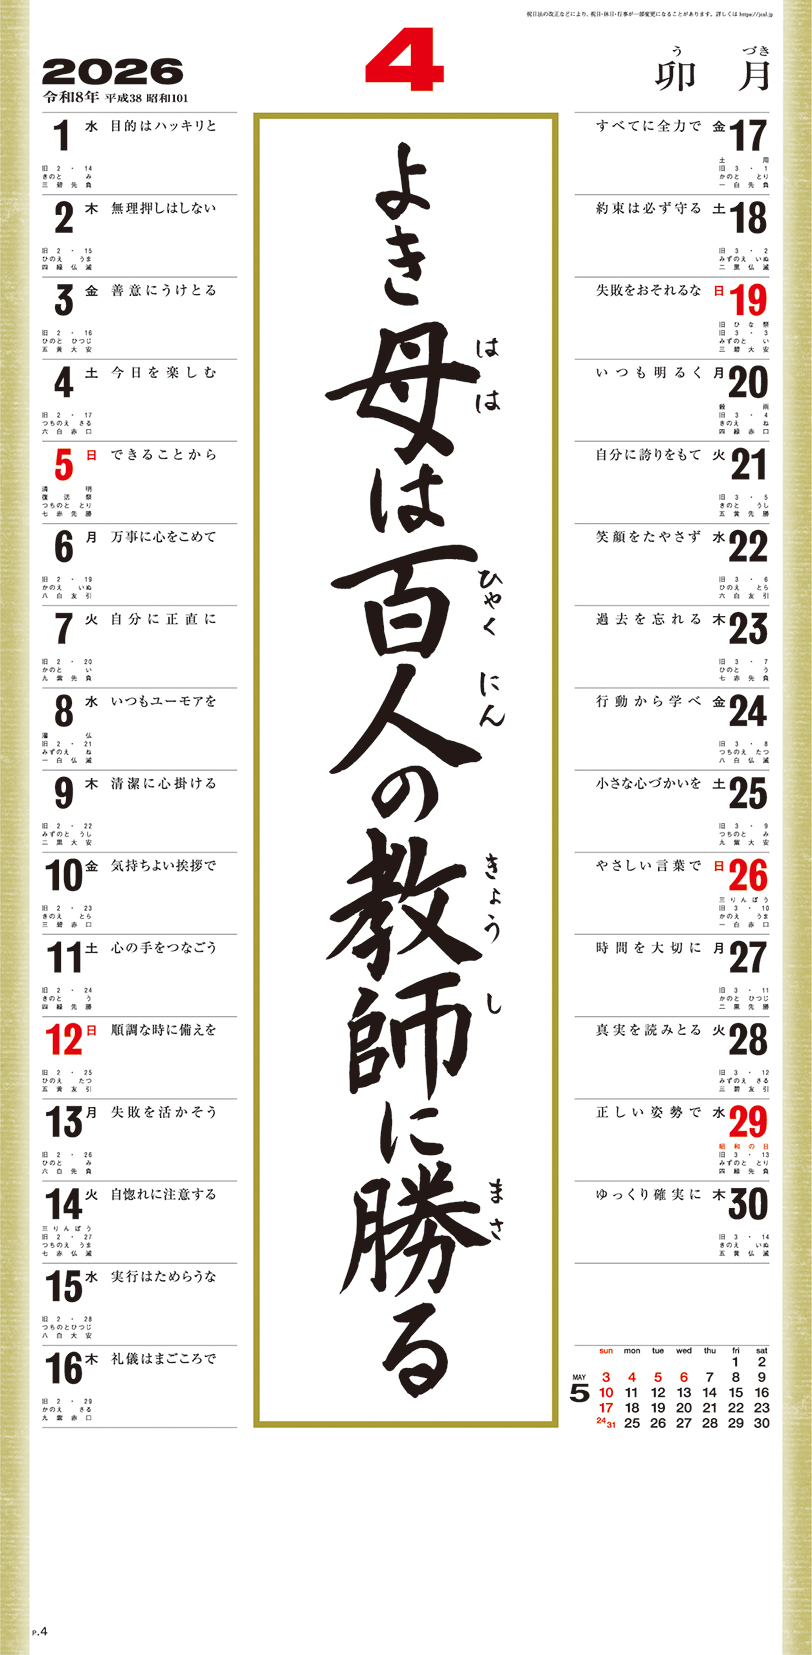 祝日法の改正などにより、祝日・休日・行事が一部変更になることがあります。詳しくは https://jcal.jp
2026
令和8年 平成38 昭和101
4
う づき
卯月
よき母は百人の教師に勝る
はは
ひゃく にん
きょう し
まさ
1 水 目的はハッキリと
旧 2・14
きのと み
三碧先負
2 木 無理押しはしない
旧 2・15
ひのえ うま
四緑仏滅
3 金 善意にうけとる
旧 2・16
ひのと ひつじ
五黄大安
4 土 今日を楽しむ
旧 2・17
つちのえ さる
六白赤口
5 日 できることから
清明
復活祭
つちのと とり
七赤先勝
6 月 万事に心をこめて
旧 2・19
かのえ いぬ
八白友引
7 火 自分に正直に
旧 2・20
かのと い
九紫先負
8 水 いつもユーモアを
灌仏
旧 2・21
みずのえ ね
一白仏滅
9 木 清潔に心掛ける
旧 2・22
みずのと うし
二黒大安
10 金 気持ちよい挨拶で
旧 2・23
きのえ とら
三碧赤口
11 土 心の手をつなごう
旧 2・24
きのと う
四緑先勝
12 日 順調な時に備えを
旧 2・25
ひのえ たつ
五黄友引
13 月 失敗を活かそう
旧 2・26
ひのと み
六白先負
14 火 自惚れに注意する
三りんぼう
旧 2・27
つちのえ うま
七赤仏滅
15 水 実行はためらうな
旧 2・28
つちのとひつじ
八白大安
16 木 礼儀はまごころで
旧 2・29
かのえ さる
九紫赤口
すべてに全力で 金 17
土用
旧 3・1
かのと とり
一白先負
約束は必ず守る 土 18
旧 3・2
みずのえ いぬ
二黒仏滅
失敗をおそれるな 日 19
旧ひな祭
旧 3・3
みずのと い
三碧大安
いつも明るく 月 20
穀雨
旧 3・4
きのえ ね
四緑赤口
自分に誇りをもて 火 21
旧 3・5
きのと うし
五黄先勝
笑顔をたやさず 水 22
旧 3・6
ひのえ とら
六白友引
過去を忘れる 木 23
旧 3・7
ひのと う
七赤先負
行動から学べ 金 24
旧 3・8
つちのえ たつ
八白仏滅
小さな心づかいを 土 25
旧 3・9
つちのと み
九紫大安
やさしい言葉で 日 26
三りんぼう
旧 3・10
かのえ うま
一白赤口
時間を大切に 月 27
旧 3・11
かのと ひつじ
二黒先勝
真実を読みとる 火 28
旧 3・12
みずのえ さる
三碧友引
正しい姿勢で 水 29
昭和の日
旧 3・13
みずのと とり
四緑先負
ゆっくり確実に 木 30
旧 3・14
きのえ いぬ
五黄仏滅
MAY
5
sun mon tue wed thu fri sat
1 2
3 4 5 6 7 8 9
10 11 12 13 14 15 16
17 18 19 20 21 22 23
24/31 25 26 27 28 29 30
P.4